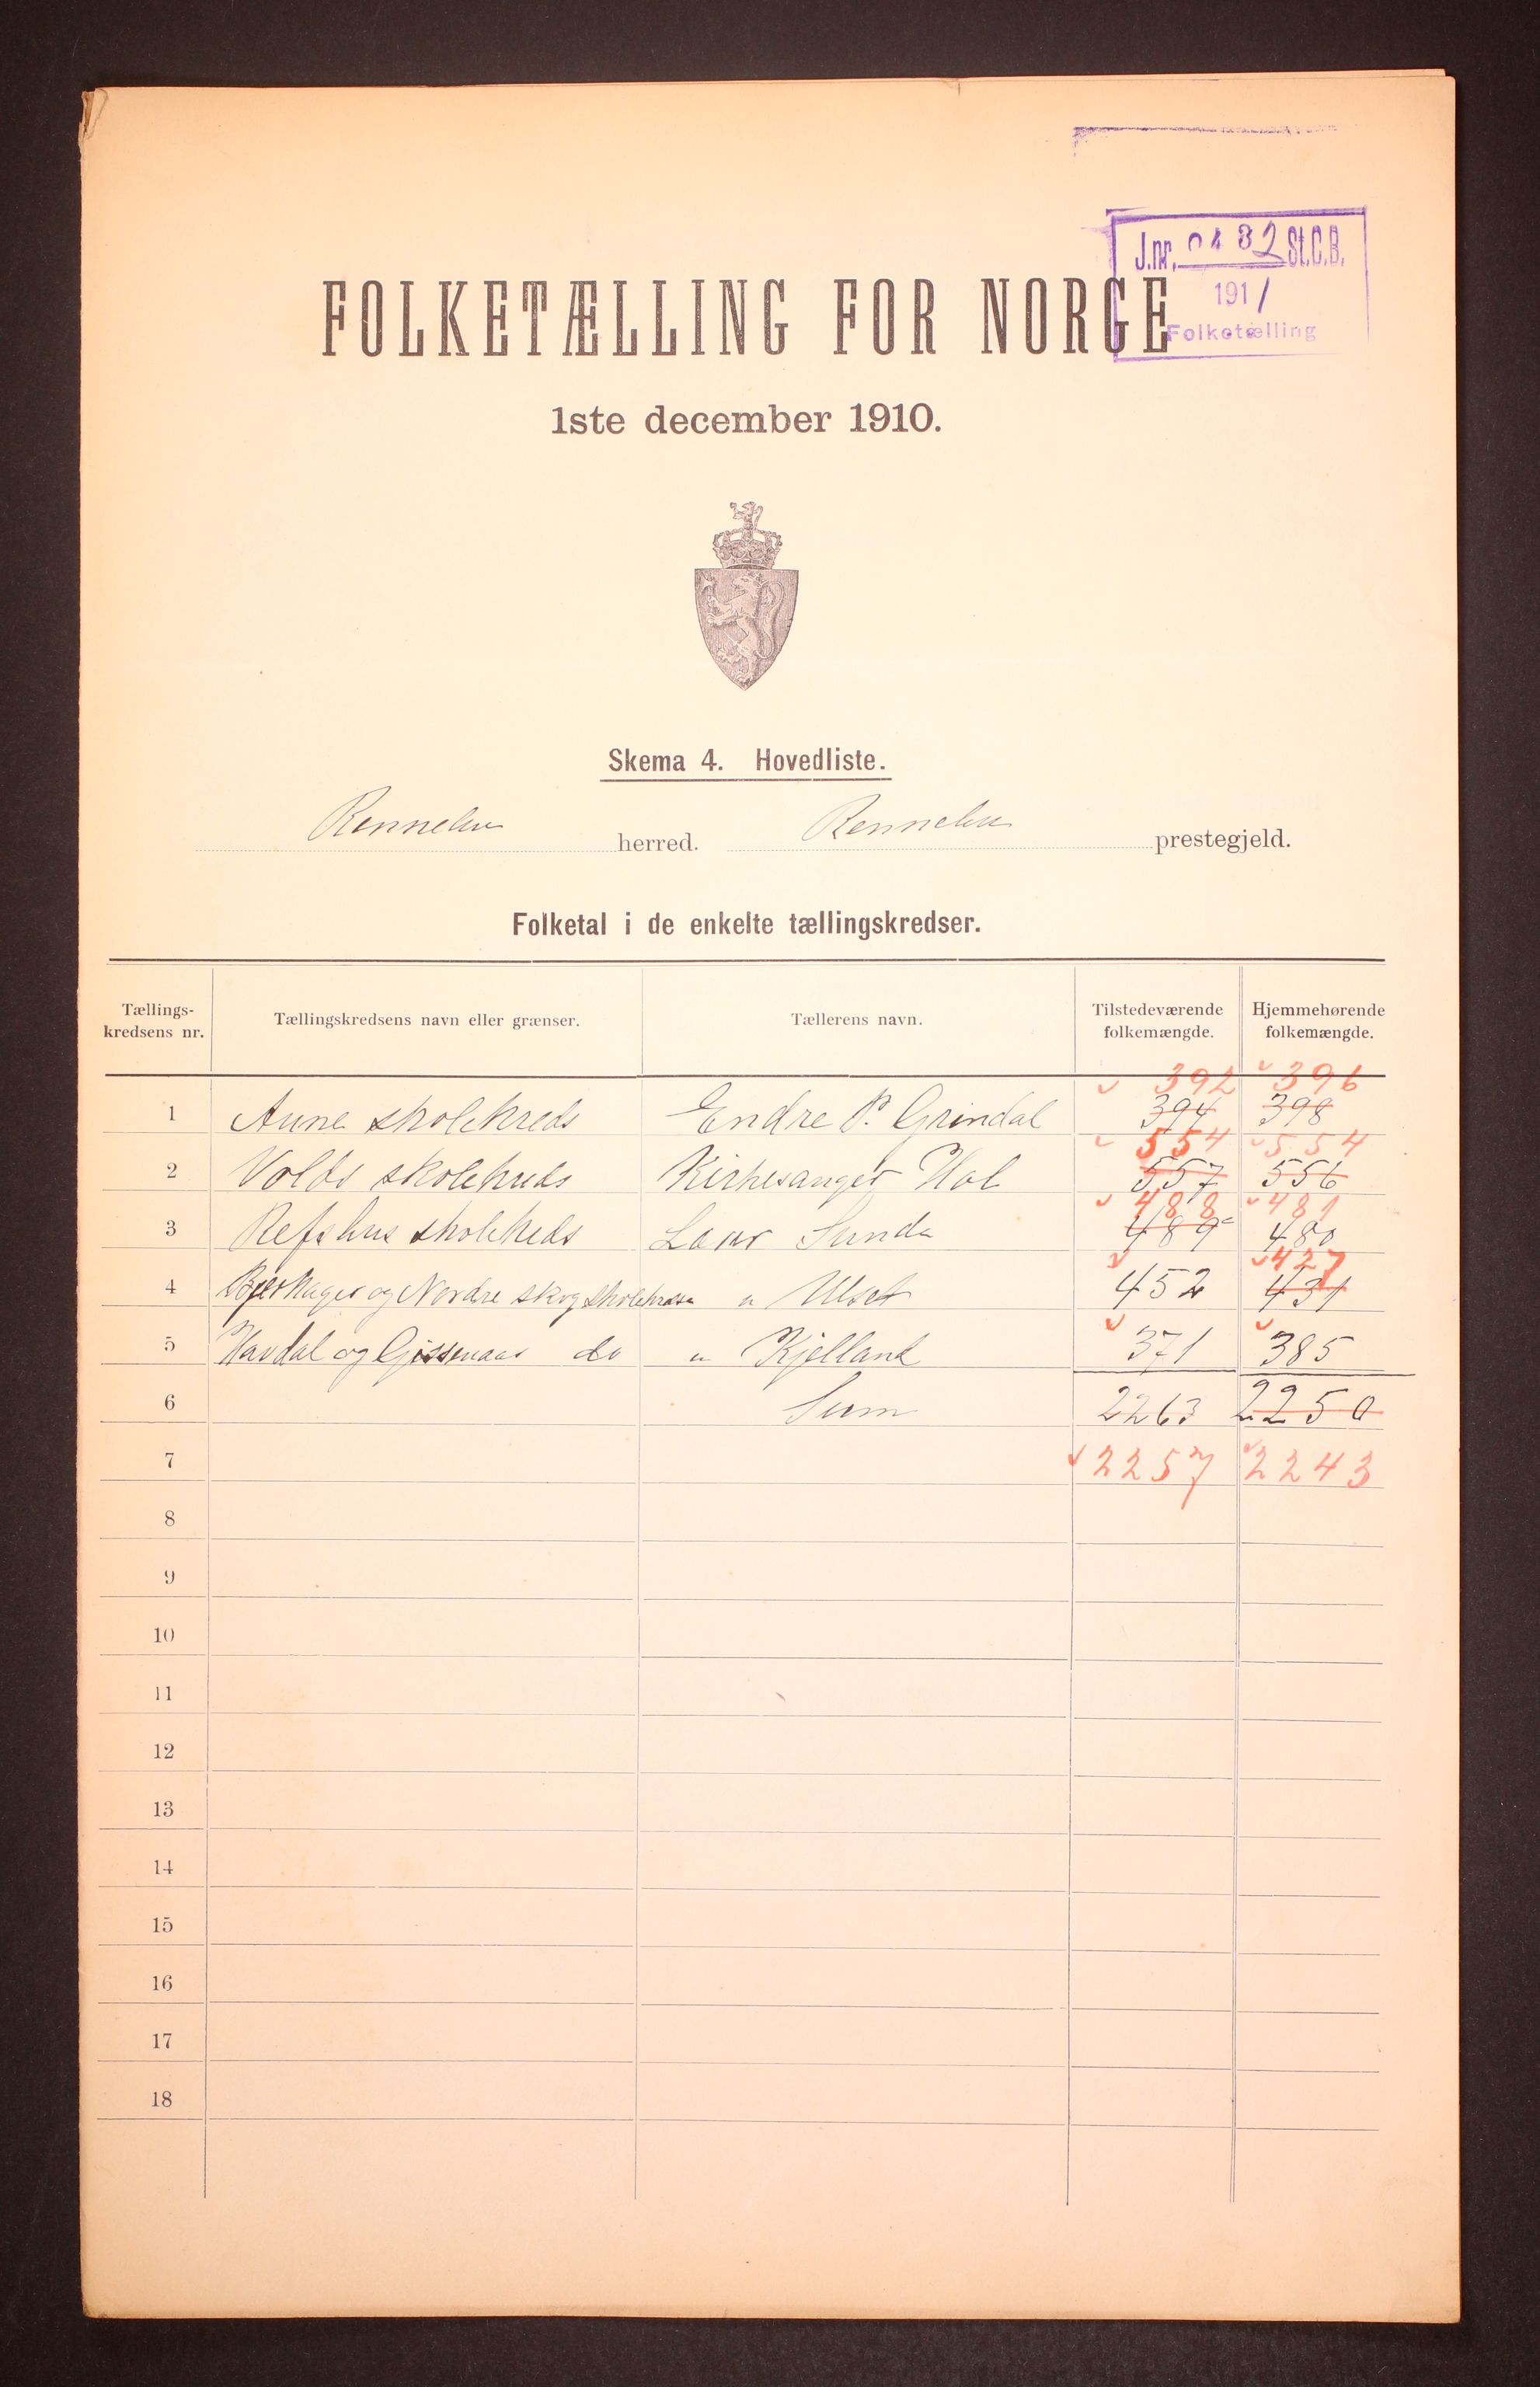 J.nr. 0432 St.C.B.
1911
Folketælling
FOLKETÆLLING FOR NORGE
1ste december 1910.
Skema 4. Hovedliste.
Rennebu herred. Rennebu prestegjeld.
Folketal i de enkelte tællingskredser.
Tællings-kredsens nr. Tællingskredsens navn eller grænser. Tællerens navn. Tilstedeværende folkemængde. Hjemmehørende folkemængde.
392 396
1 Aune skolekreds Endre P. Grindal 394 398
554 554
2 Volds skolekreds Kirkesanger Hol 557 556
488 481
3 Refshus skolekreds Lærer Sunda 489 480
427
4 og Nordre skog skolekreds " Ulset 452 431
5 Havdal og Gissenaas do " Kjelland 371 385
6 Sum 2263 2250
7 2257 2243
8
9
10
11
12
13
14
15
16
17
18